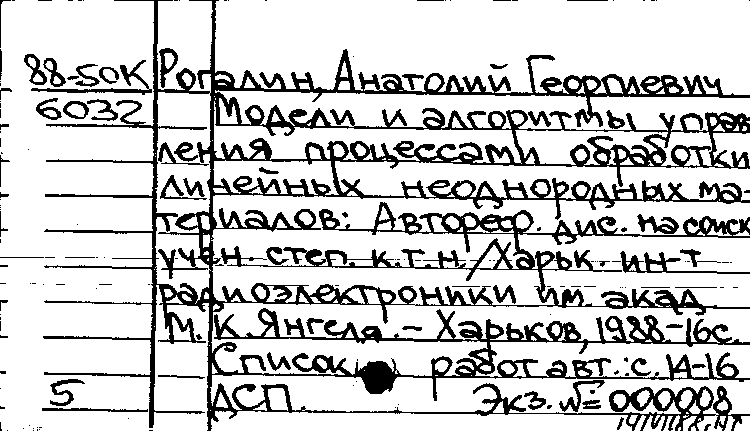 88-50К Рогалин, Анатолий Георгиевич
6032 Модели и алгоритмы управ
ления процессами обработки
линейных неоднородных ма-
териалов: Автореф. дис. на соиск
учен. степ. к.т.н. / Харьк. ин-т
радиоэлектроники им. акад.
М. К. Янгеля. – Харьков, 1988 – 16с.
Список работ авт.: с. 14-16.
5 ДСП. Экз. № 000008